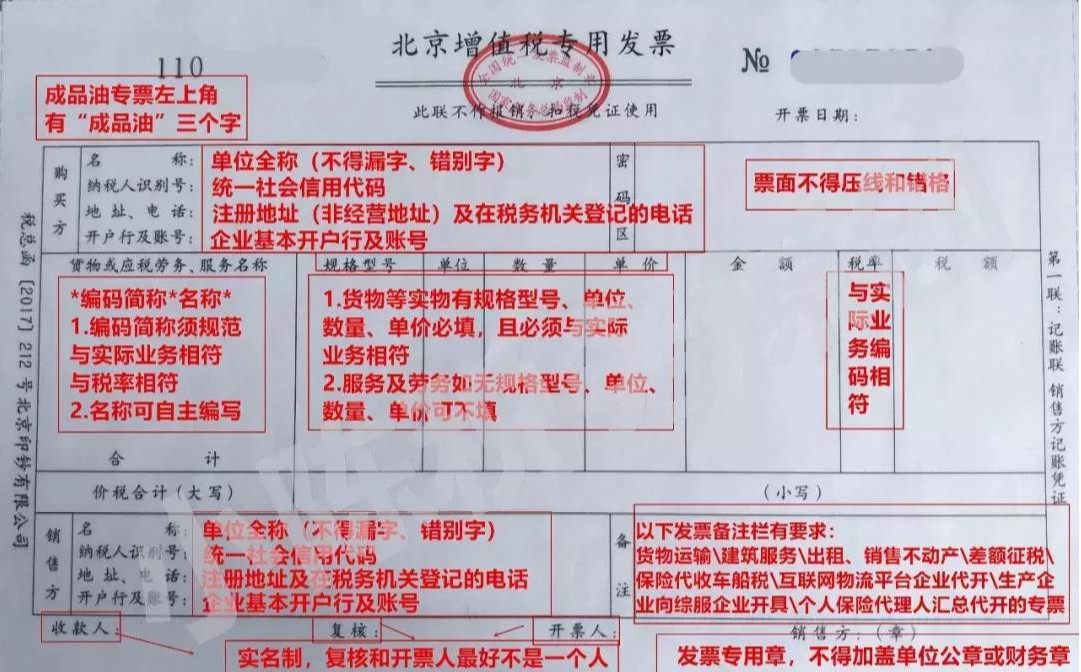 北京增值税专用发票
110
№
全国统一发票监制章
北京
国家税务总局监制
成品油专票左上角
有“成品油”三个字
此联不作报销、扣税凭证使用
开票日期:
购买方
名 称: 单位全称（不得漏字、错别字）
纳税人识别号: 统一社会信用代码
地 址、电 话: 注册地址（非经营地址）及在税务机关登记的电话
开户行及账号: 企业基本开户行及账号
密码区
票面不得压线和错格
货物或应税劳务、服务名称 规格型号 单位 数 量 单 价 金 额 税率 税 额
*编码简称*名称*
1.编码简称须规范
与实际业务相符
与税率相符
2.名称可自主编写
1.货物等实物有规格型号、单位、
数量、单价必填，且必须与实际
业务相符
2.服务及劳务如无规格型号、单位、
数量、单价可不填
与实
际业
务编
码相
符
合 计
价税合计（大写） （小写）
销售方
名 称: 单位全称（不得漏字、错别字）
纳税人识别号: 统一社会信用代码
地 址、电 话: 注册地址及在税务机关登记的电话
开户行及账号: 企业基本开户行及账号
备注
以下发票备注栏有要求:
货物运输\建筑服务\出租、销售不动产\差额征税\
保险代收车船税\互联网物流平台企业代开\生产企
业向综服企业开具\个人保险代理人汇总代开的专票
收款人: 复核: 开票人: 销售方:（章）
实名制，复核和开票人最好不是一个人
发票专用章，不得加盖单位公章或财务章
税总函〔2017〕212号北京印钞有限公司
第一联：记账联 销售方记账凭证